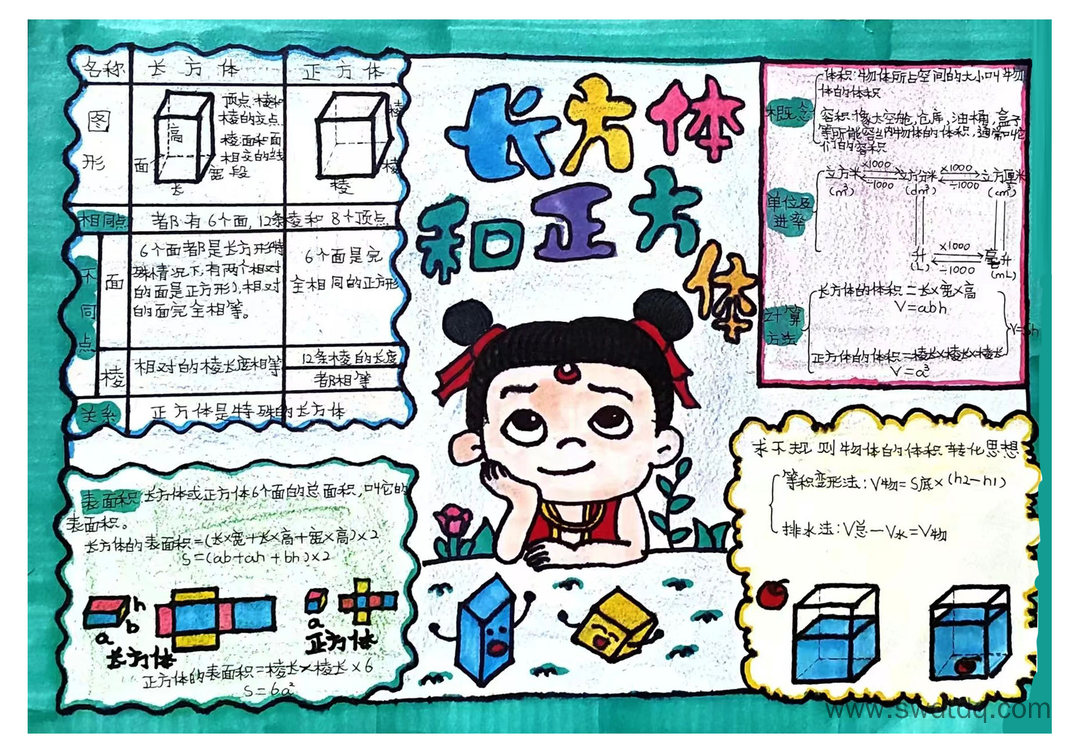 长方体
和正方
体
名称 长方体 正方体
图
形
高
面
长
宽
两点:棱和
棱的交点
棱:面和面
相交的线
段
棱
棱
棱
相同点 都有6个面,12条棱和8个顶点
不
同
点
面
6个面都是长方形(特
殊情况下,有两个相对
的面是正方形),相对
的面完全相等。
6个面是完
全相同的正方形
棱
相对的棱长度相等
12条棱的长度
都相等
关系 正方体是特殊的长方体
表面积:长方体或正方体6个面的总面积,叫它的
表面积。
长方体的表面积=(长×宽+长×高+宽×高)×2
S=(ab+ah+bh)×2
h
a b
长方体
a
正方体
正方体的表面积=棱长×棱长×6
S=6a²
概念
体积:物体所占空间的大小叫物
体的体积
容积:像太空舱,仓库,油桶,盒子
等所能容纳物体的体积,通常叫它
们的容积
单位及
进率
立方米 ×1000 ÷1000 立方分米 ×1000 ÷1000 立方厘米
(m³) (dm³) (cm³)
升 ×1000 ÷1000 毫升
(L) (mL)
计算
方法
长方体的体积=长×宽×高
V=abh
V=Sh
正方体的体积=棱长×棱长×棱长
V=a³
求不规则物体的体积 转化思想
等积变形法:V物=S底×(h2-h1)
排水法:V总-V水=V物
www.swdtdq.com